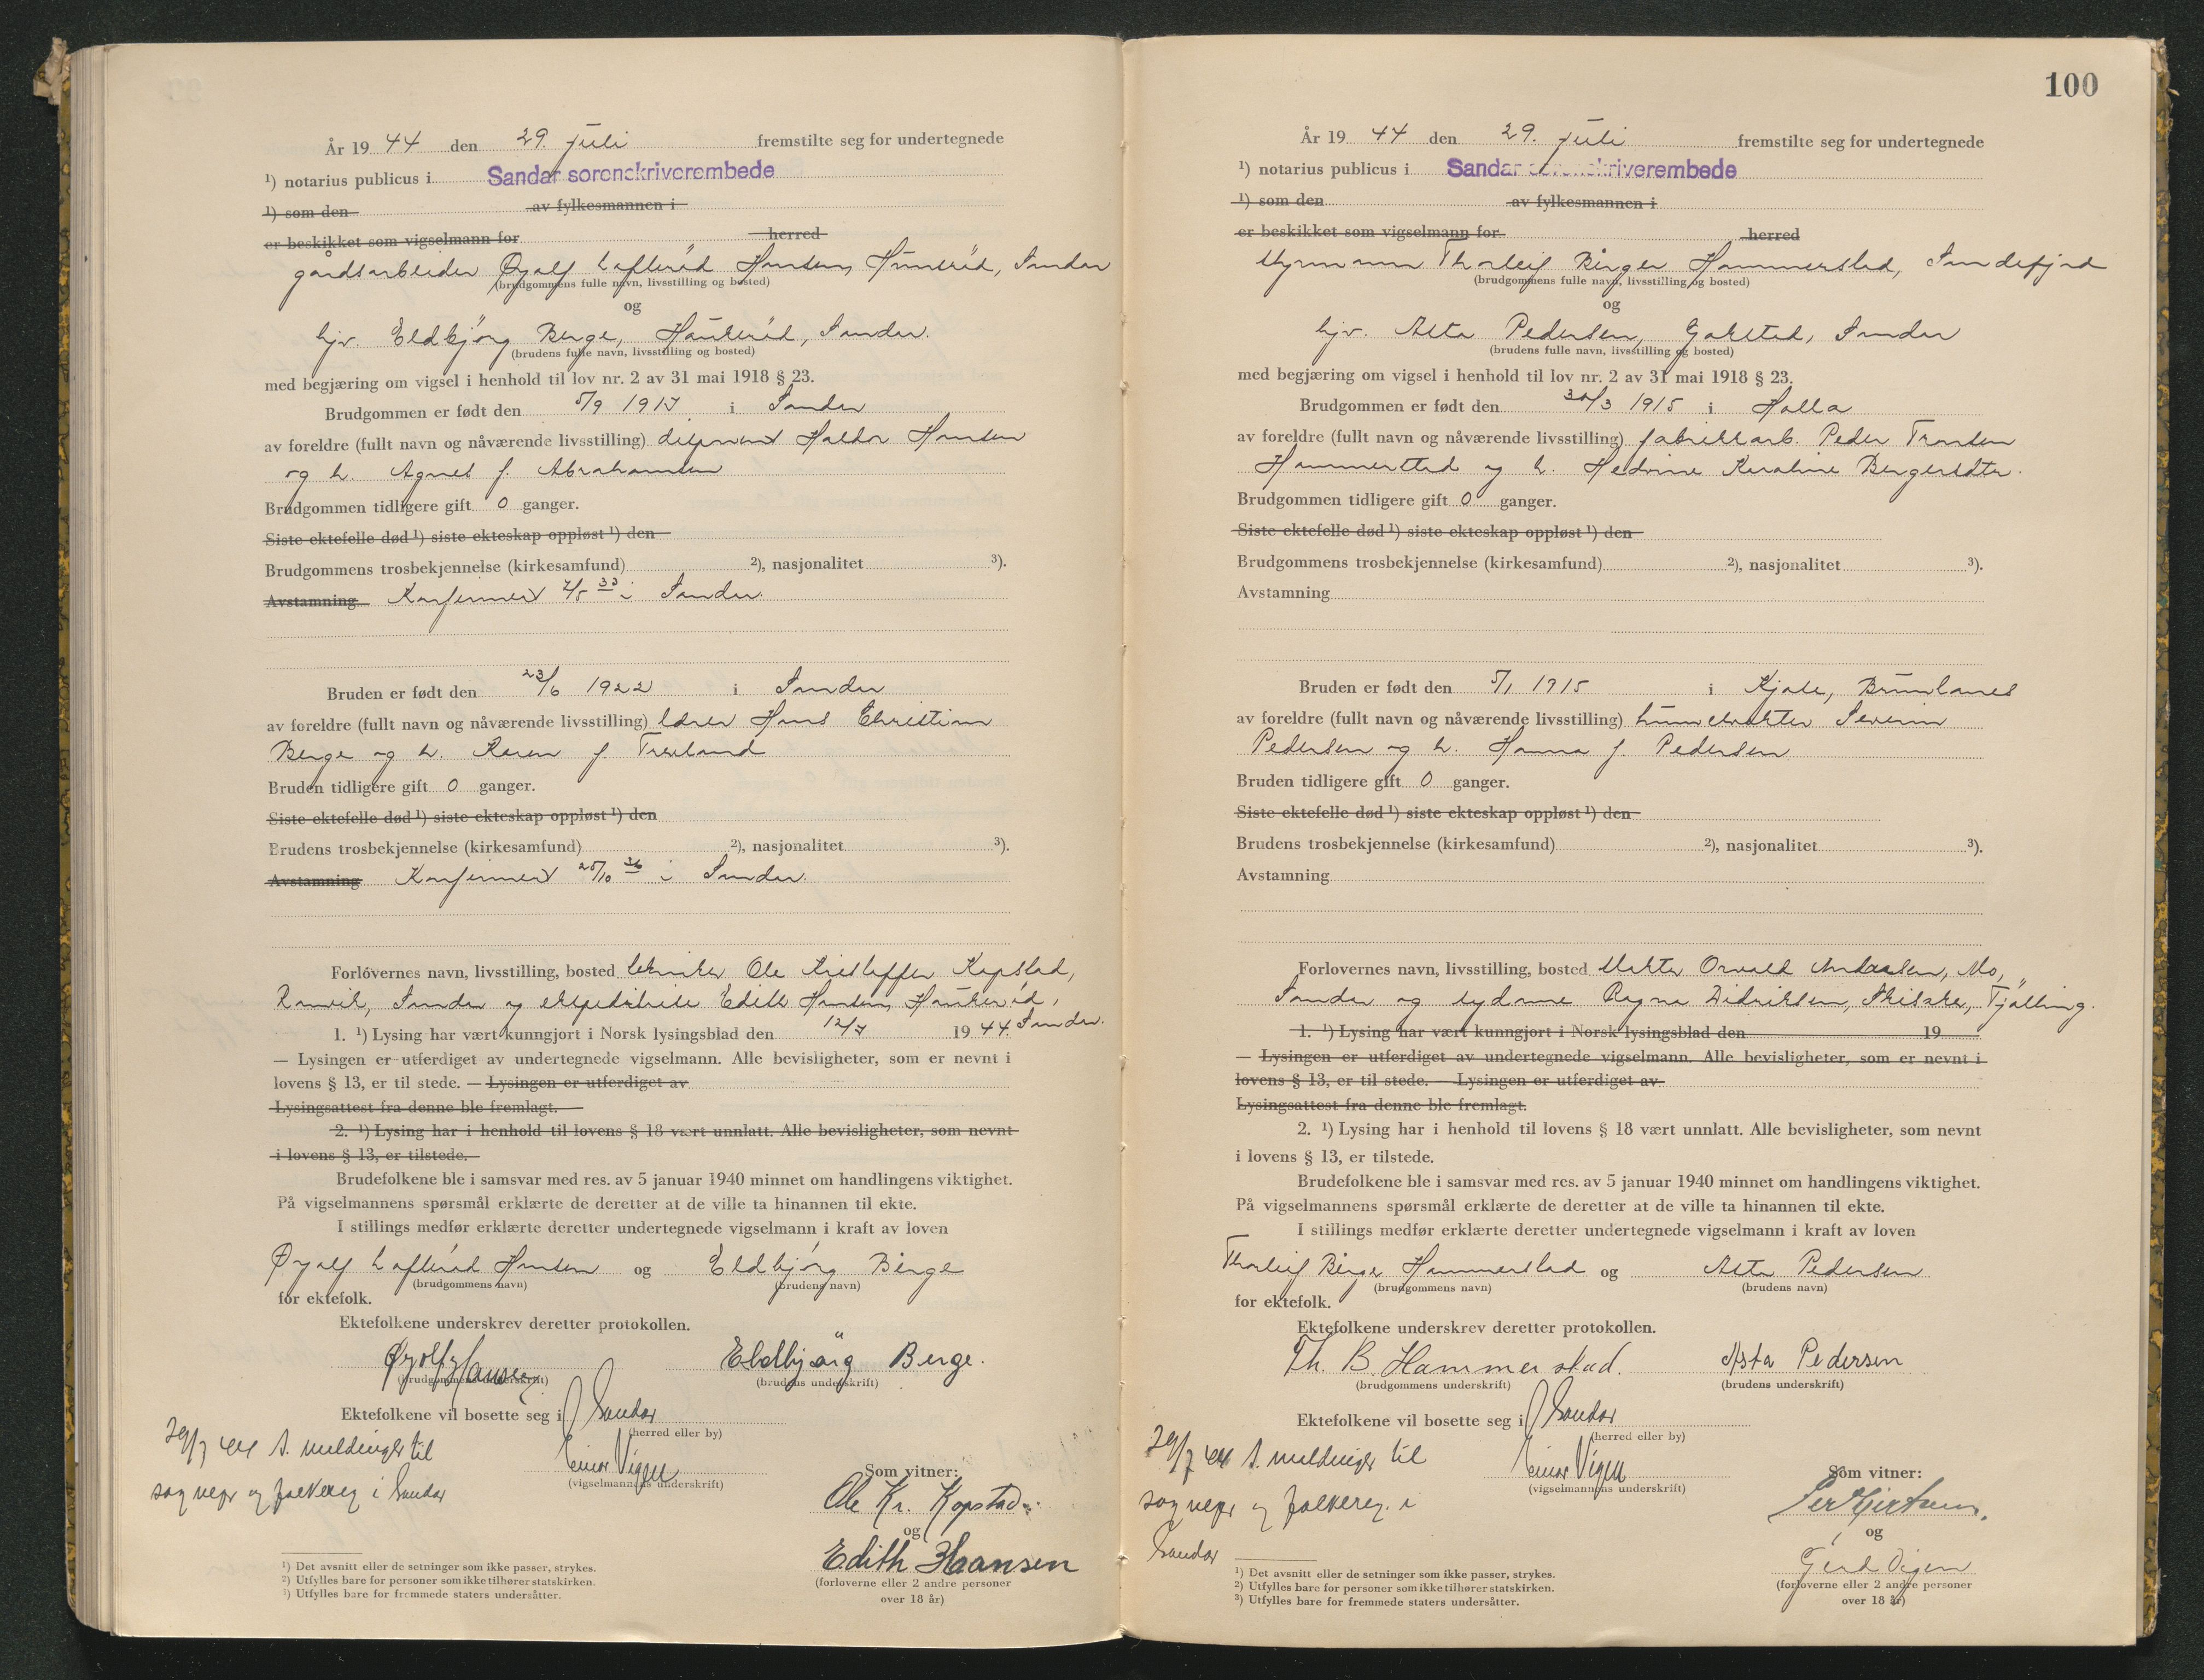 År 19 44 den 29. juli fremstilte seg for undertegnede
¹) notarius publicus i Sandar sorenskriverembede
¹) som den av fylkesmannen i
er beskikket som vigselmann for herred
gårdsarbeider Øyolf Lofterød Hansen, Haukerød, Sandar
(brudgommens fulle navn, livsstilling og bosted)
og
hjv. Eldbjörg Berge, Haukeröd, Sandar.
(brudens fulle navn, livsstilling og bosted)
med begjæring om vigsel i henhold til lov nr. 2 av 31 mai 1918 § 23.
Brudgommen er født den 5/9 1917 i Sandar
av foreldre (fullt navn og nåværende livsstilling) disponent Haldor Hansen
og h. Agnes f. Abrahamsen
Brudgommen tidligere gift 0 ganger.
Siste ektefelle død ¹) siste ekteskap oppløst ¹) den
Brudgommens trosbekjennelse (kirkesamfund) ²), nasjonalitet ³).
Avstamning Konfirmert 7/5 33 i Sandar.
Bruden er født den 23/6 1922 i Sandar
av foreldre (fullt navn og nåværende livsstilling) lærer Hans Christian
Berge og h. Karen f.
Bruden tidligere gift 0 ganger.
Siste ektefelle død ¹) siste ekteskap oppløst ¹) den
Brudens trosbekjennelse (kirkesamfund) ²), nasjonalitet ³).
Avstamning Konfirmert 25/10 36 i Sandar.
Forlovernes navn, livsstilling, bosted tekniker Ole Kristoffer Kopstad,
Ranvik, Sandar og ekspeditrise Edith Hansen, Haukeröd,
Sandar.
1. ¹) Lysing har vært kunngjort i Norsk lysingsblad den 12/7 19 44.
— Lysingen er utferdiget av undertegnede vigselmann. Alle bevisligheter, som er nevnt i
lovens § 13, er til stede. — Lysingen er utferdiget av
Lysingsattest fra denne ble fremlagt.
2. ¹) Lysing har i henhold til lovens § 18 vært unnlatt. Alle bevisligheter, som nevnt
i lovens § 13, er tilstede.
Brudefolkene ble i samsvar med res. av 5 januar 1940 minnet om handlingens viktighet.
På vigselmannens spørsmål erklærte de deretter at de ville ta hinannen til ekte.
I stillings medfør erklærte deretter undertegnede vigselmann i kraft av loven
Øyolf Lofteröd Hansen og Eldbjörg Berge
(brudgommens navn) (brudens navn)
for ektefolk.
Ektefolkene underskrev deretter protokollen.
Øyolf Hansen Eldbjörg Berge.
(brudgommens underskrift) (brudens underskrift)
Ektefolkene vil bosette seg i Sandar
(herred eller by)
29/7 44 s. meldinger til
sognepr og folkereg i Sandar
Einar Vigen
(vigselmannens underskrift)
Som vitner:
Ole Kr. Kopstad
og
Edith Haansen
(forloverne eller 2 andre personer
over 18 år)
¹) Det avsnitt eller de setninger som ikke passer, strykes.
²) Utfylles bare for personer som ikke tilhører statskirken.
³) Utfylles bare for fremmede staters undersåtter.
100
År 19 44 den 29. juli fremstilte seg for undertegnede
¹) notarius publicus i Sandar sorenskriverembede
¹) som den av fylkesmannen i
er beskikket som vigselmann for herred
styrmann Thorleif Birger Hammerstad, Sandefjord
(brudgommens fulle navn, livsstilling og bosted)
og
hjv. Asta Pedersen, Gokstad, Sandar
(brudens fulle navn, livsstilling og bosted)
med begjæring om vigsel i henhold til lov nr. 2 av 31 mai 1918 § 23.
Brudgommen er født den 30/3 1915 i Holla
av foreldre (fullt navn og nåværende livsstilling) fabrikkarb. Peder Transen
Hammerstad og h. Hedvine Karoline Bergersdtr.
Brudgommen tidligere gift 0 ganger.
Siste ektefelle død ¹) siste ekteskap oppløst ¹) den
Brudgommens trosbekjennelse (kirkesamfund) ²), nasjonalitet ³).
Avstamning
Bruden er født den 5/1 1915 i Kjole, Brunlanes
av foreldre (fullt navn og nåværende livsstilling) Severin
Pedersen og h. Hanna f. Pedersen
Bruden tidligere gift 0 ganger.
Siste ektefelle død ¹) siste ekteskap oppløst ¹) den
Brudens trosbekjennelse (kirkesamfund) ²), nasjonalitet ³).
Avstamning
Forlovernes navn, livsstilling, bosted Osvald Andersen, Mo,
Sandar og sydame Ragna Didriksen, Tjølling.
1. ¹) Lysing har vært kunngjort i Norsk lysingsblad den 19
— Lysingen er utferdiget av undertegnede vigselmann. Alle bevisligheter, som er nevnt i
lovens § 13, er til stede. — Lysingen er utferdiget av
Lysingsattest fra denne ble fremlagt.
2. ¹) Lysing har i henhold til lovens § 18 vært unnlatt. Alle bevisligheter, som nevnt
i lovens § 13, er tilstede.
Brudefolkene ble i samsvar med res. av 5 januar 1940 minnet om handlingens viktighet.
På vigselmannens spørsmål erklærte de deretter at de ville ta hinannen til ekte.
I stillings medfør erklærte deretter undertegnede vigselmann i kraft av loven
Thorleif Birger Hammerstad og Asta Pedersen
(brudgommens navn) (brudens navn)
for ektefolk.
Ektefolkene underskrev deretter protokollen.
Th. B. Hammerstad. Asta Pedersen
(brudgommens underskrift) (brudens underskrift)
Ektefolkene vil bosette seg i Sandar
(herred eller by)
29/7 44 s. meldinger til
sognepr og folkereg. i
Sandar
Einar Vigen
(vigselmannens underskrift)
Som vitner:
og
Gerd Vigen
(forloverne eller 2 andre personer
over 18 år)
¹) Det avsnitt eller de setninger som ikke passer, strykes.
²) Utfylles bare for personer som ikke tilhører statskirken.
³) Utfylles bare for fremmede staters undersåtter.